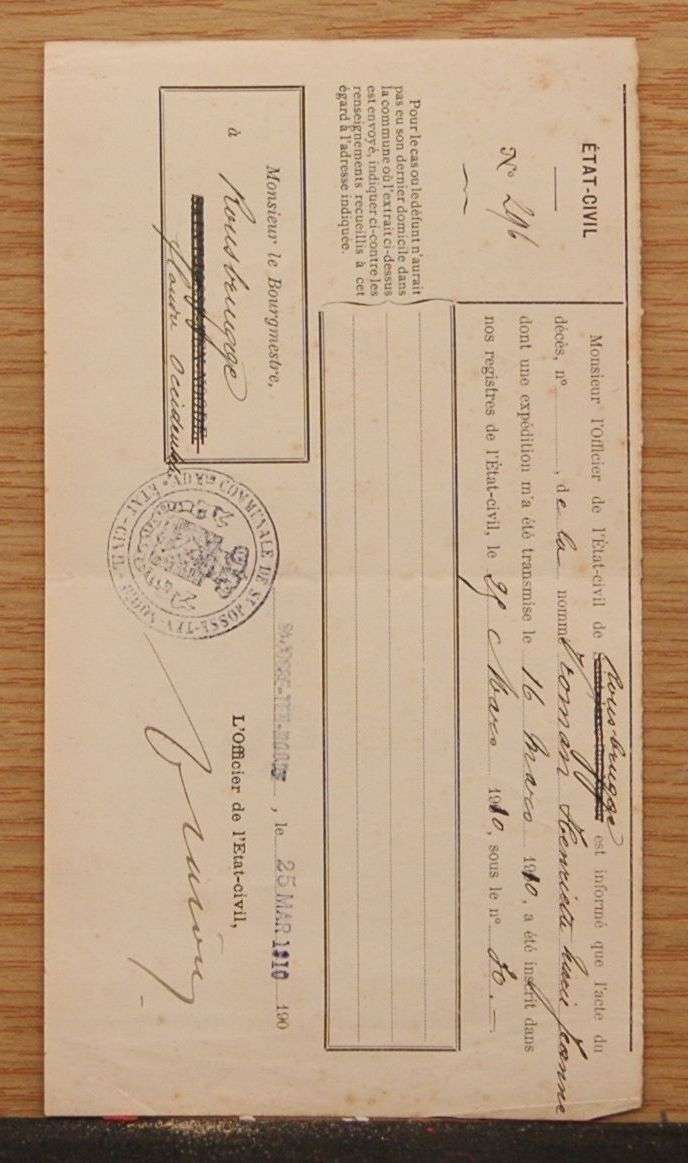 ÉTAT-CIVIL
N° 296
Monsieur l'Officier de l'État-civil de Rousbrugge est informé que l'acte du
décès, n° , de la nommé Vroman Henriette Lucie Jeanne
dont une expédition m'a été transmise le 16 Mars 1910, a été inscrit dans
nos registres de l'État-civil, le 25 Mars 1910, sous le n° 80.-
Pour le cas ou le défunt n'aurait
pas eu son dernier domicile dans
la commune où l'extrait ci-dessus
est envoyé, indiquer ci-contre les
renseignements recueillis à cet
égard à l'adresse indiquée.
Monsieur le Bourgmestre,
à Rousbrugge
flandre Occidentale
St-JOSSE-TEN-NOODE, le 25 MAR 1910 190
L'Officier de l'Etat-civil,
COMMUNALE DE St-JOSSE-TEN-NOODE
ÉTAT-CIVIL